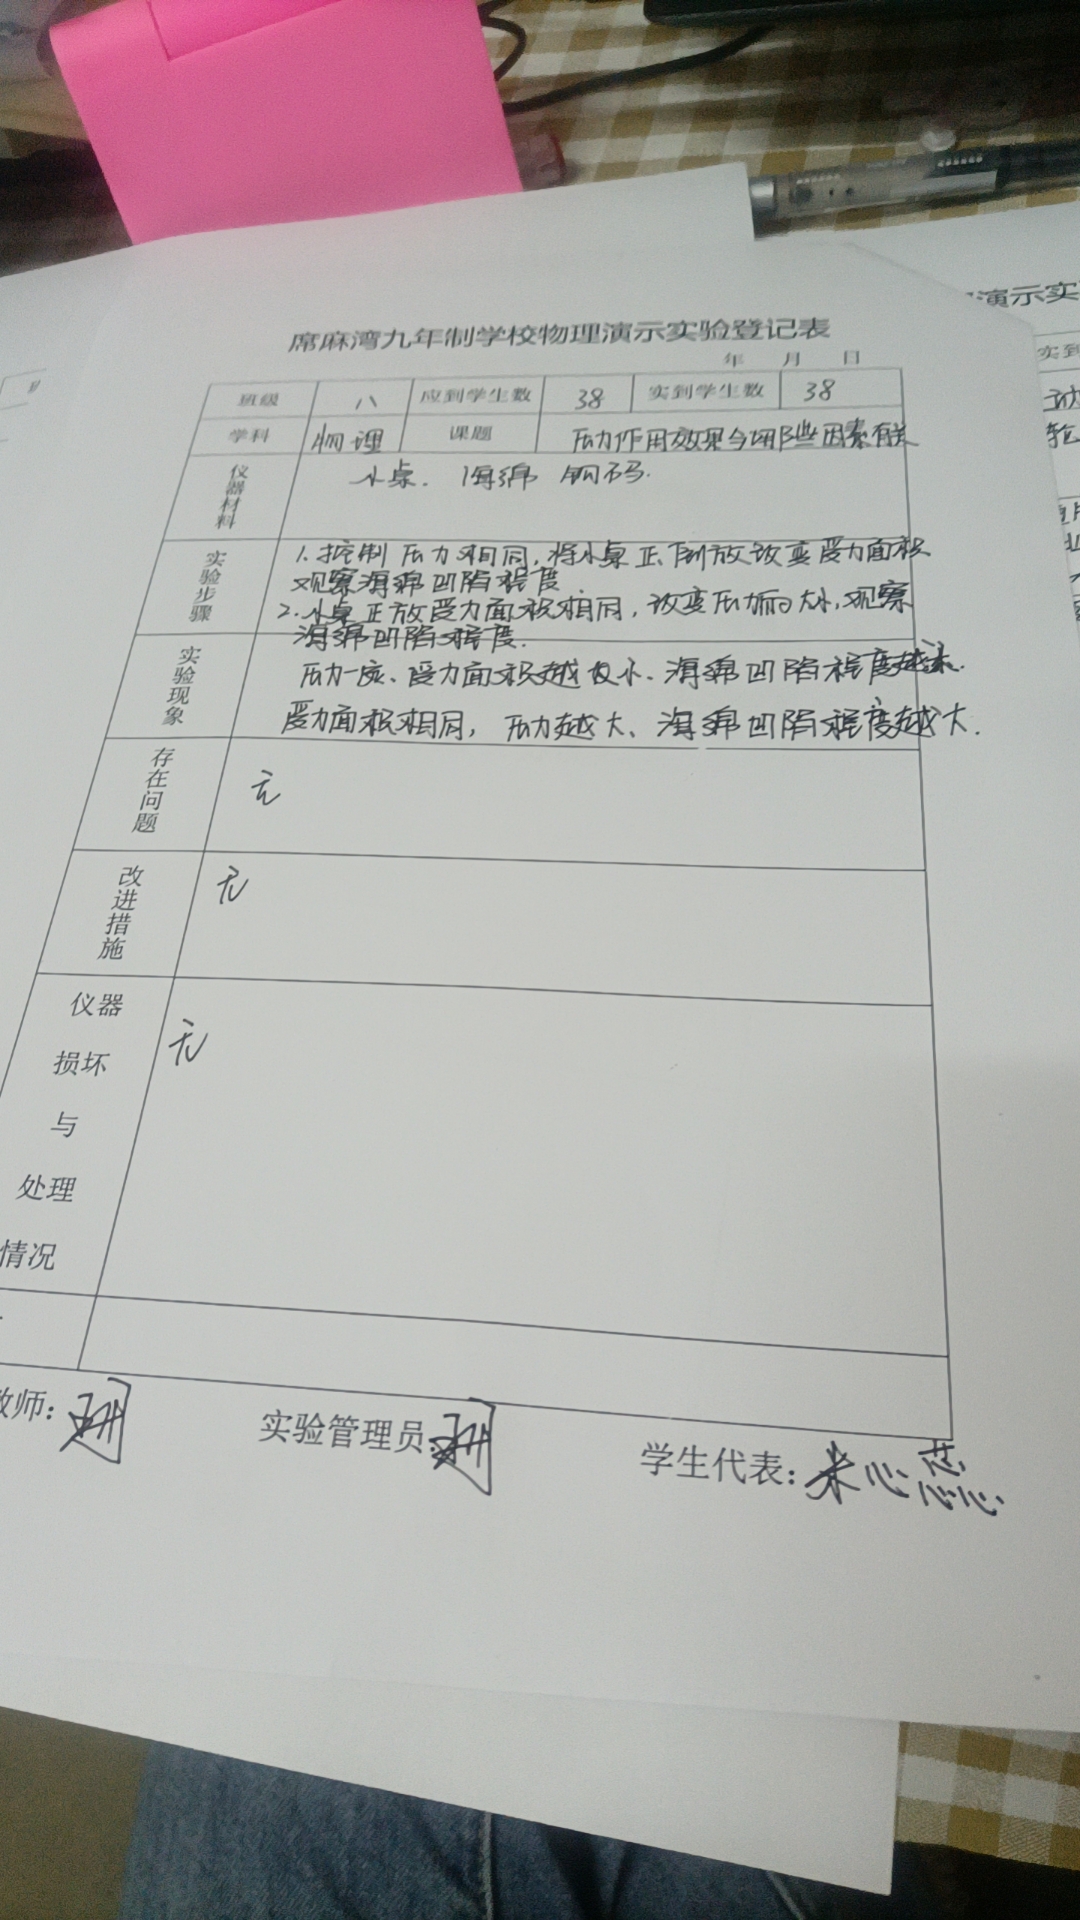 席麻湾九年制学校物理演示实验登记表
年 月 日
班级 八 应到学生数 38 实到学生数 38
学科 物理 课题 压力作用效果与哪些因素有关
仪器材料 小桌. 海绵 钢码.
实验步骤 1.控制压力相同,将小桌正、倒放改变受力面积
观察海绵凹陷程度.
2.小桌正放受力面积相同,改变压力的大小,观察
海绵凹陷程度.
实验现象 压力一定、受力面积越小、海绵凹陷程度越
受力面积相同, 压力越大、海绵凹陷程度越大.
存在问题 无
改进措施 无
仪器
损坏
与
处理
情况
无
教师: 实验管理员: 学生代表:
演示实
实到